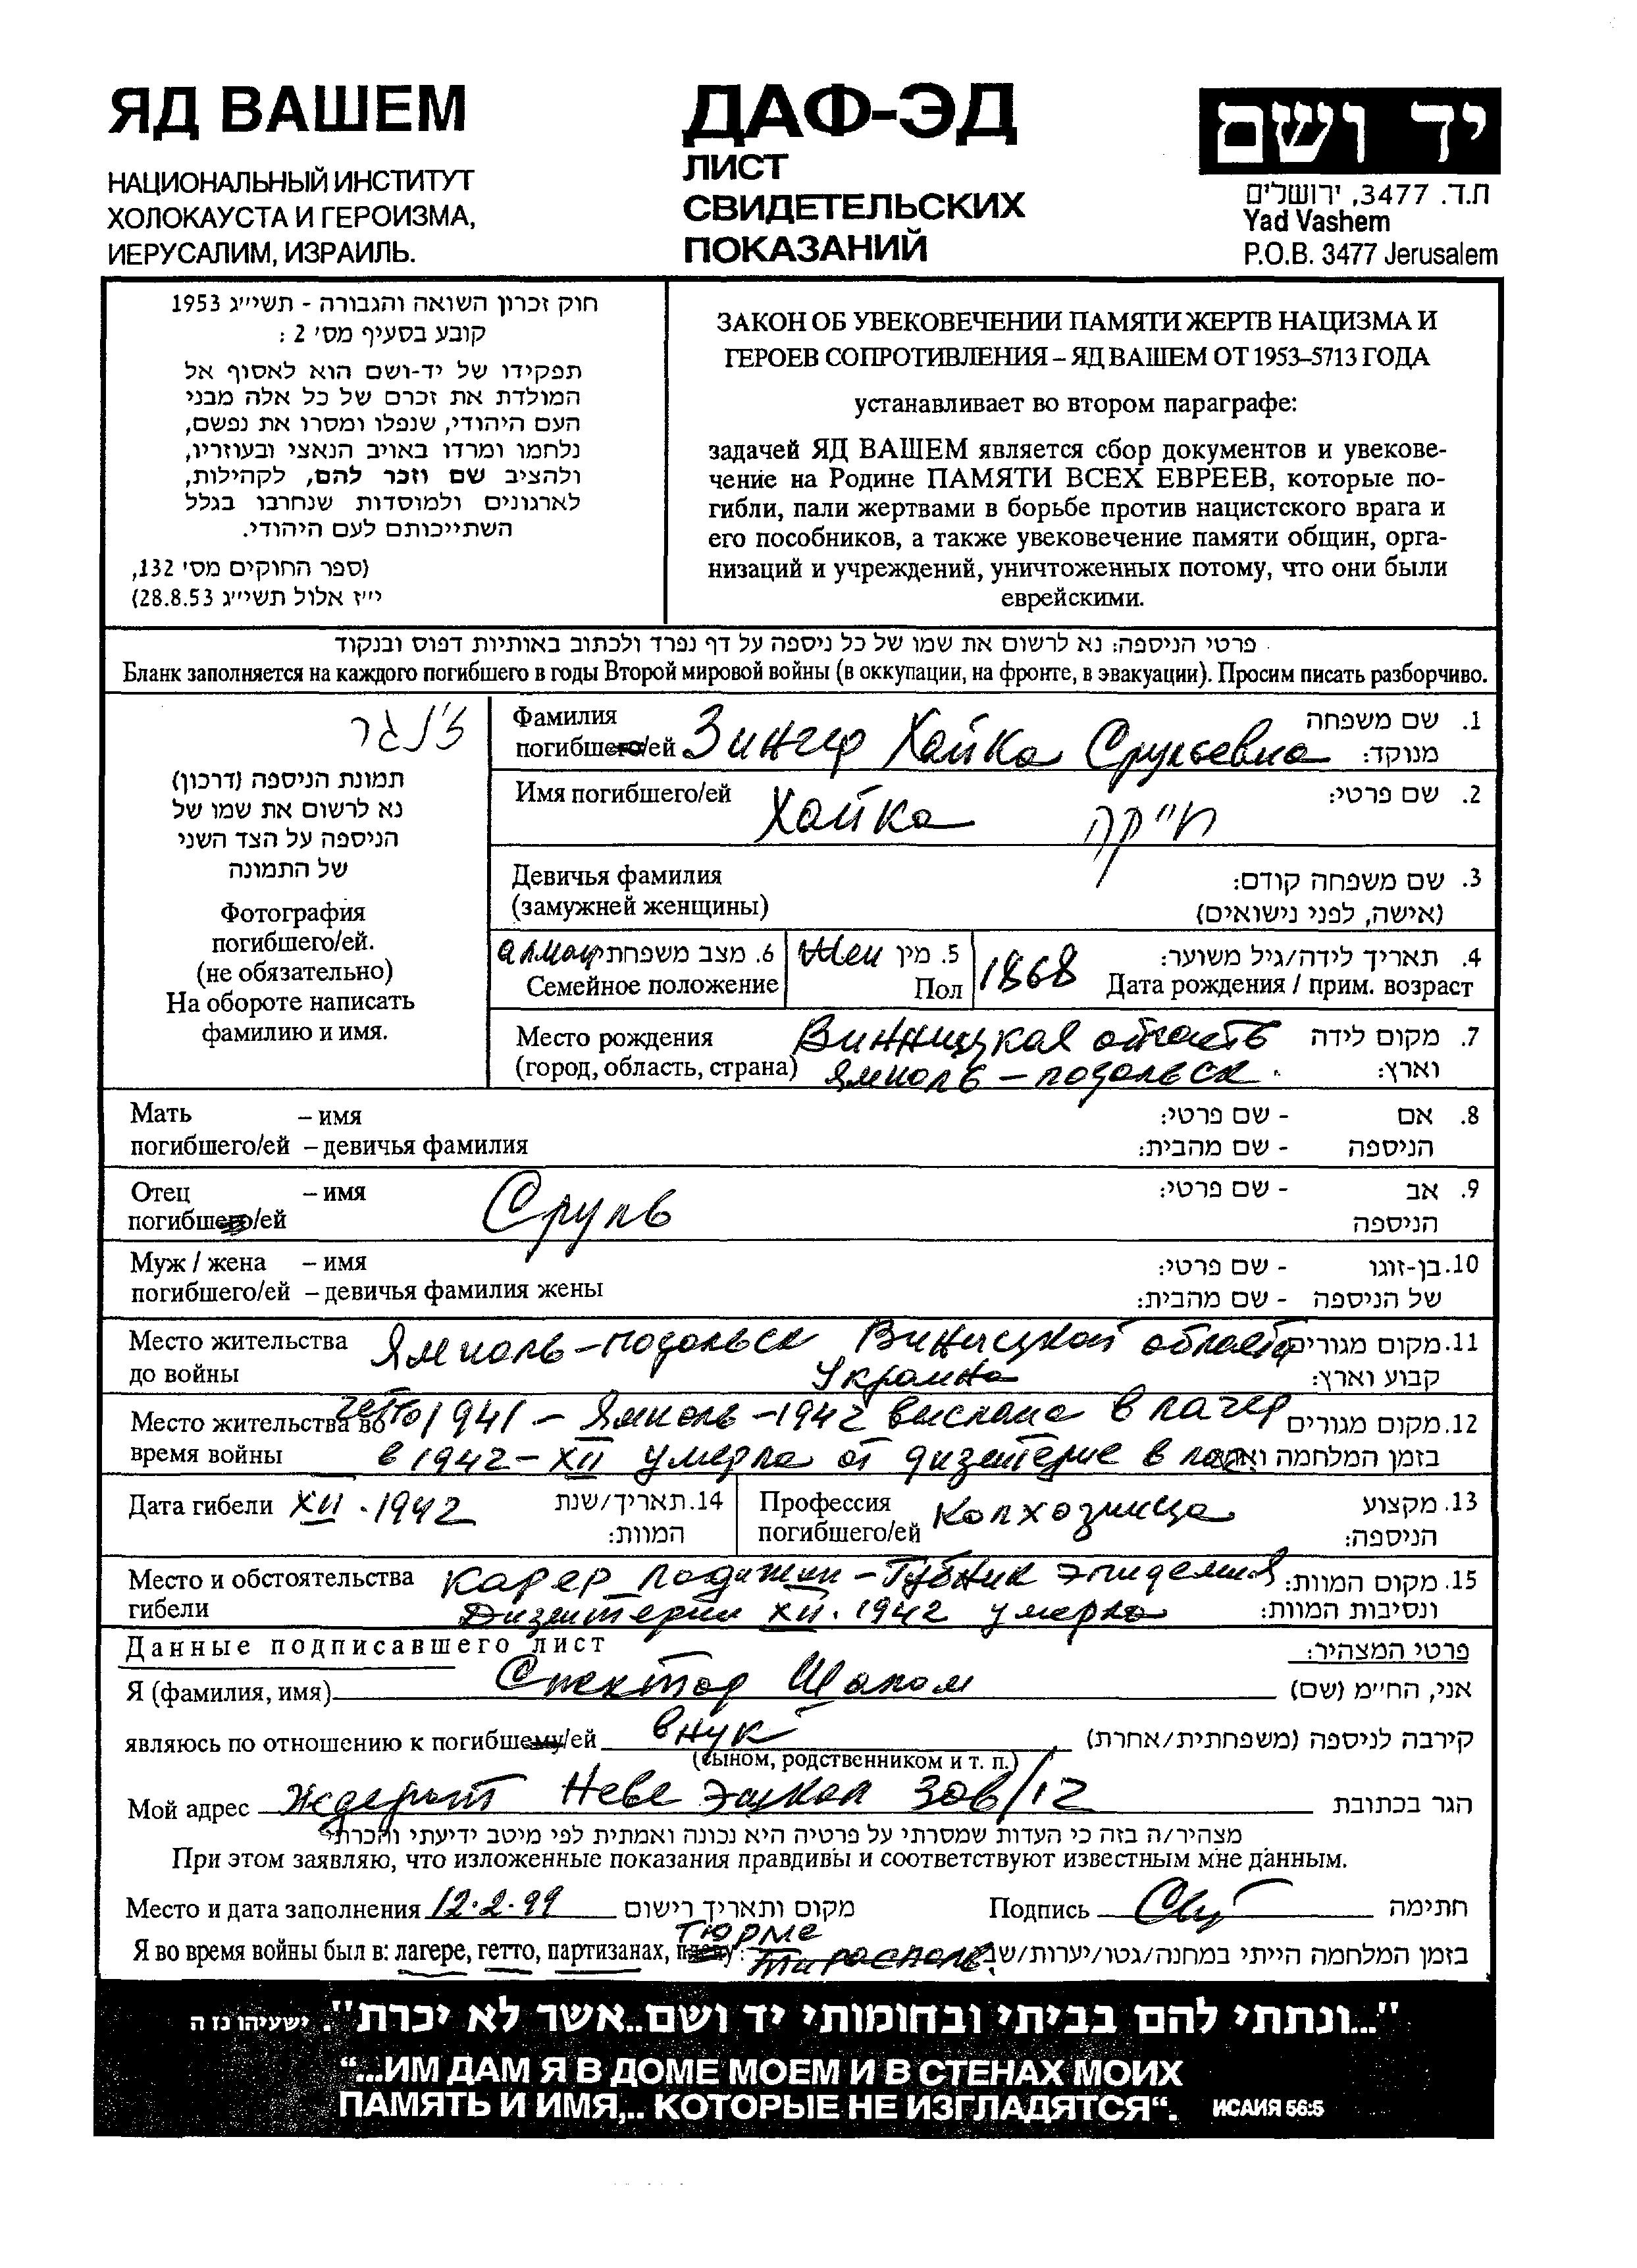 ЯД ВАШЕМ
НАЦИОНАЛЬНЫЙ ИНСТИТУТ
ХОЛОКАУСТА И ГЕРОИЗМА,
ИЕРУСАЛИМ, ИЗРАИЛЬ.
ДАФ-ЭД
ЛИСТ
СВИДЕТЕЛЬСКИХ
ПОКАЗАНИЙ
יד ושם
ת.ד. 3477, ירושלים
Yad Vashem
P.O.B. 3477 Jerusalem
חוק זכרון השואה והגבורה - תשי״ג 1953
קובע בסעיף מס׳ 2 :
תפקידו של יד-ושם הוא לאסוף אל
המולדת את זכרם של כל אלה מבני
העם היהודי, שנפלו ומסרו את נפשם,
נלחמו ומרדו באויב הנאצי ובעוזריו,
ולהציב שם וזכר להם, לקהילות,
לארגונים ולמוסדות שנחרבו בגלל
השתייכותם לעם היהודי.
(ספר החוקים מס׳ 132,
י״ז אלול תשי״ג 28.8.53)
ЗАКОН ОБ УВЕКОВЕЧЕНИИ ПАМЯТИ ЖЕРТВ НАЦИЗМА И
ГЕРОЕВ СОПРОТИВЛЕНИЯ – ЯД ВАШЕМ ОТ 1953–5713 ГОДА
устанавливает во втором параграфе:
задачей ЯД ВАШЕМ является сбор документов и увекове-
чение на Родине ПАМЯТИ ВСЕХ ЕВРЕЕВ, которые по-
гибли, пали жертвами в борьбе против нацистского врага и
его пособников, а также увековечение памяти общин, орга-
низаций и учреждений, уничтоженных потому, что они были
еврейскими.
פרטי הניספה: נא לרשום את שמו של כל ניספה על דף נפרד ולכתוב באותיות דפוס ובנקוד
Бланк заполняется на каждого погибшего в годы Второй мировой войны (в оккупации, на фронте, в эвакуации). Просим писать разборчиво.
זינגר
תמונת הניספה (דרכון)
נא לרשום את שמו של
הניספה על הצד השני
של התמונה
Фотография
погибшего/ей.
(не обязательно)
На обороте написать
фамилию и имя.
Фамилия 1. שם משפחה
погибшего/ей Зингер Хайка Срульевна מנוקד:
Имя погибшего/ей 2. שם פרטי:
Хайка חייקה
Девичья фамилия 3. שם משפחה קודם:
(замужней женщины) (אישה, לפני נישואים)
6. מצב משפחתי Жен 5. מין 1868 4. תאריך לידה/גיל משוער:
Семейное положение Пол Дата рождения / прим. возраст
Место рождения Винницкая область 7. מקום לידה
(город, область, страна) Ямполь – подольск. וארץ:
Мать – имя 8. אם - שם פרטי:
погибшего/ей – девичья фамилия הניספה - שם מהבית:
Отец – имя Сруль 9. אב - שם פרטי:
погибшего/ей הניספה
Муж / жена – имя 10. בן-זוגו - שם פרטי:
погибшего/ей – девичья фамилия жены של הניספה - שם מהבית:
Место жительства Ямполь-подольск Виницкой области 11. מקום מגורים
до войны Украина קבוע וארץ:
Место жительства во гетто 1941 – Ямполь – 1942 выслана в лагер 12. מקום מגורים
время войны в 1942 – XII умерла от дизентерие в בזמן המלחמה
Дата гибели XII. 1942 14. תאריך/שנת Профессия Колхозница 13. מקצוע
המוות: погибшего/ей הניספה:
Место и обстоятельства карер ладижин – Губник эпидемия 15. מקום המוות:
гибели Дизентерии XII. 1942 умерла ונסיבות המוות:
Данные подписавшего лист פרטי המצהיר:
Я (фамилия, имя) Спектор Шалом אני, החי״מ (שם)
являюсь по отношению к погибшему/ей внук קירבה לניספה (משפחתית/אחרת)
(сыном, родственником и т. п.)
Мой адрес Ждерот Неве Эшкол 308/12 הגר בכתובת
מצהיר/ה בזה כי העדות שמסרתי על פרטיה היא נכונה ואמתית לפי מיטב ידיעתי והכרתי
При этом заявляю, что изложенные показания правдивы и соответствуют известным мне данным.
Место и дата заполнения 12.2.99 מקום ותאריך רישום Подпись חתימה
тюрме
Я во время войны был в: лагере, гетто, партизанах, плену: Тирасполь בזמן המלחמה הייתי במחנה/גטו/יערות/שבי
"...ונתתי להם בביתי ובחומותי יד ושם..אשר לא יכרת". ישעיהו נז ה
“...ИМ ДАМ Я В ДОМЕ МОЕМ И В СТЕНАХ МОИХ
ПАМЯТЬ И ИМЯ,.. КОТОРЫЕ НЕ ИЗГЛАДЯТСЯ“. ИСАИЯ 56:5